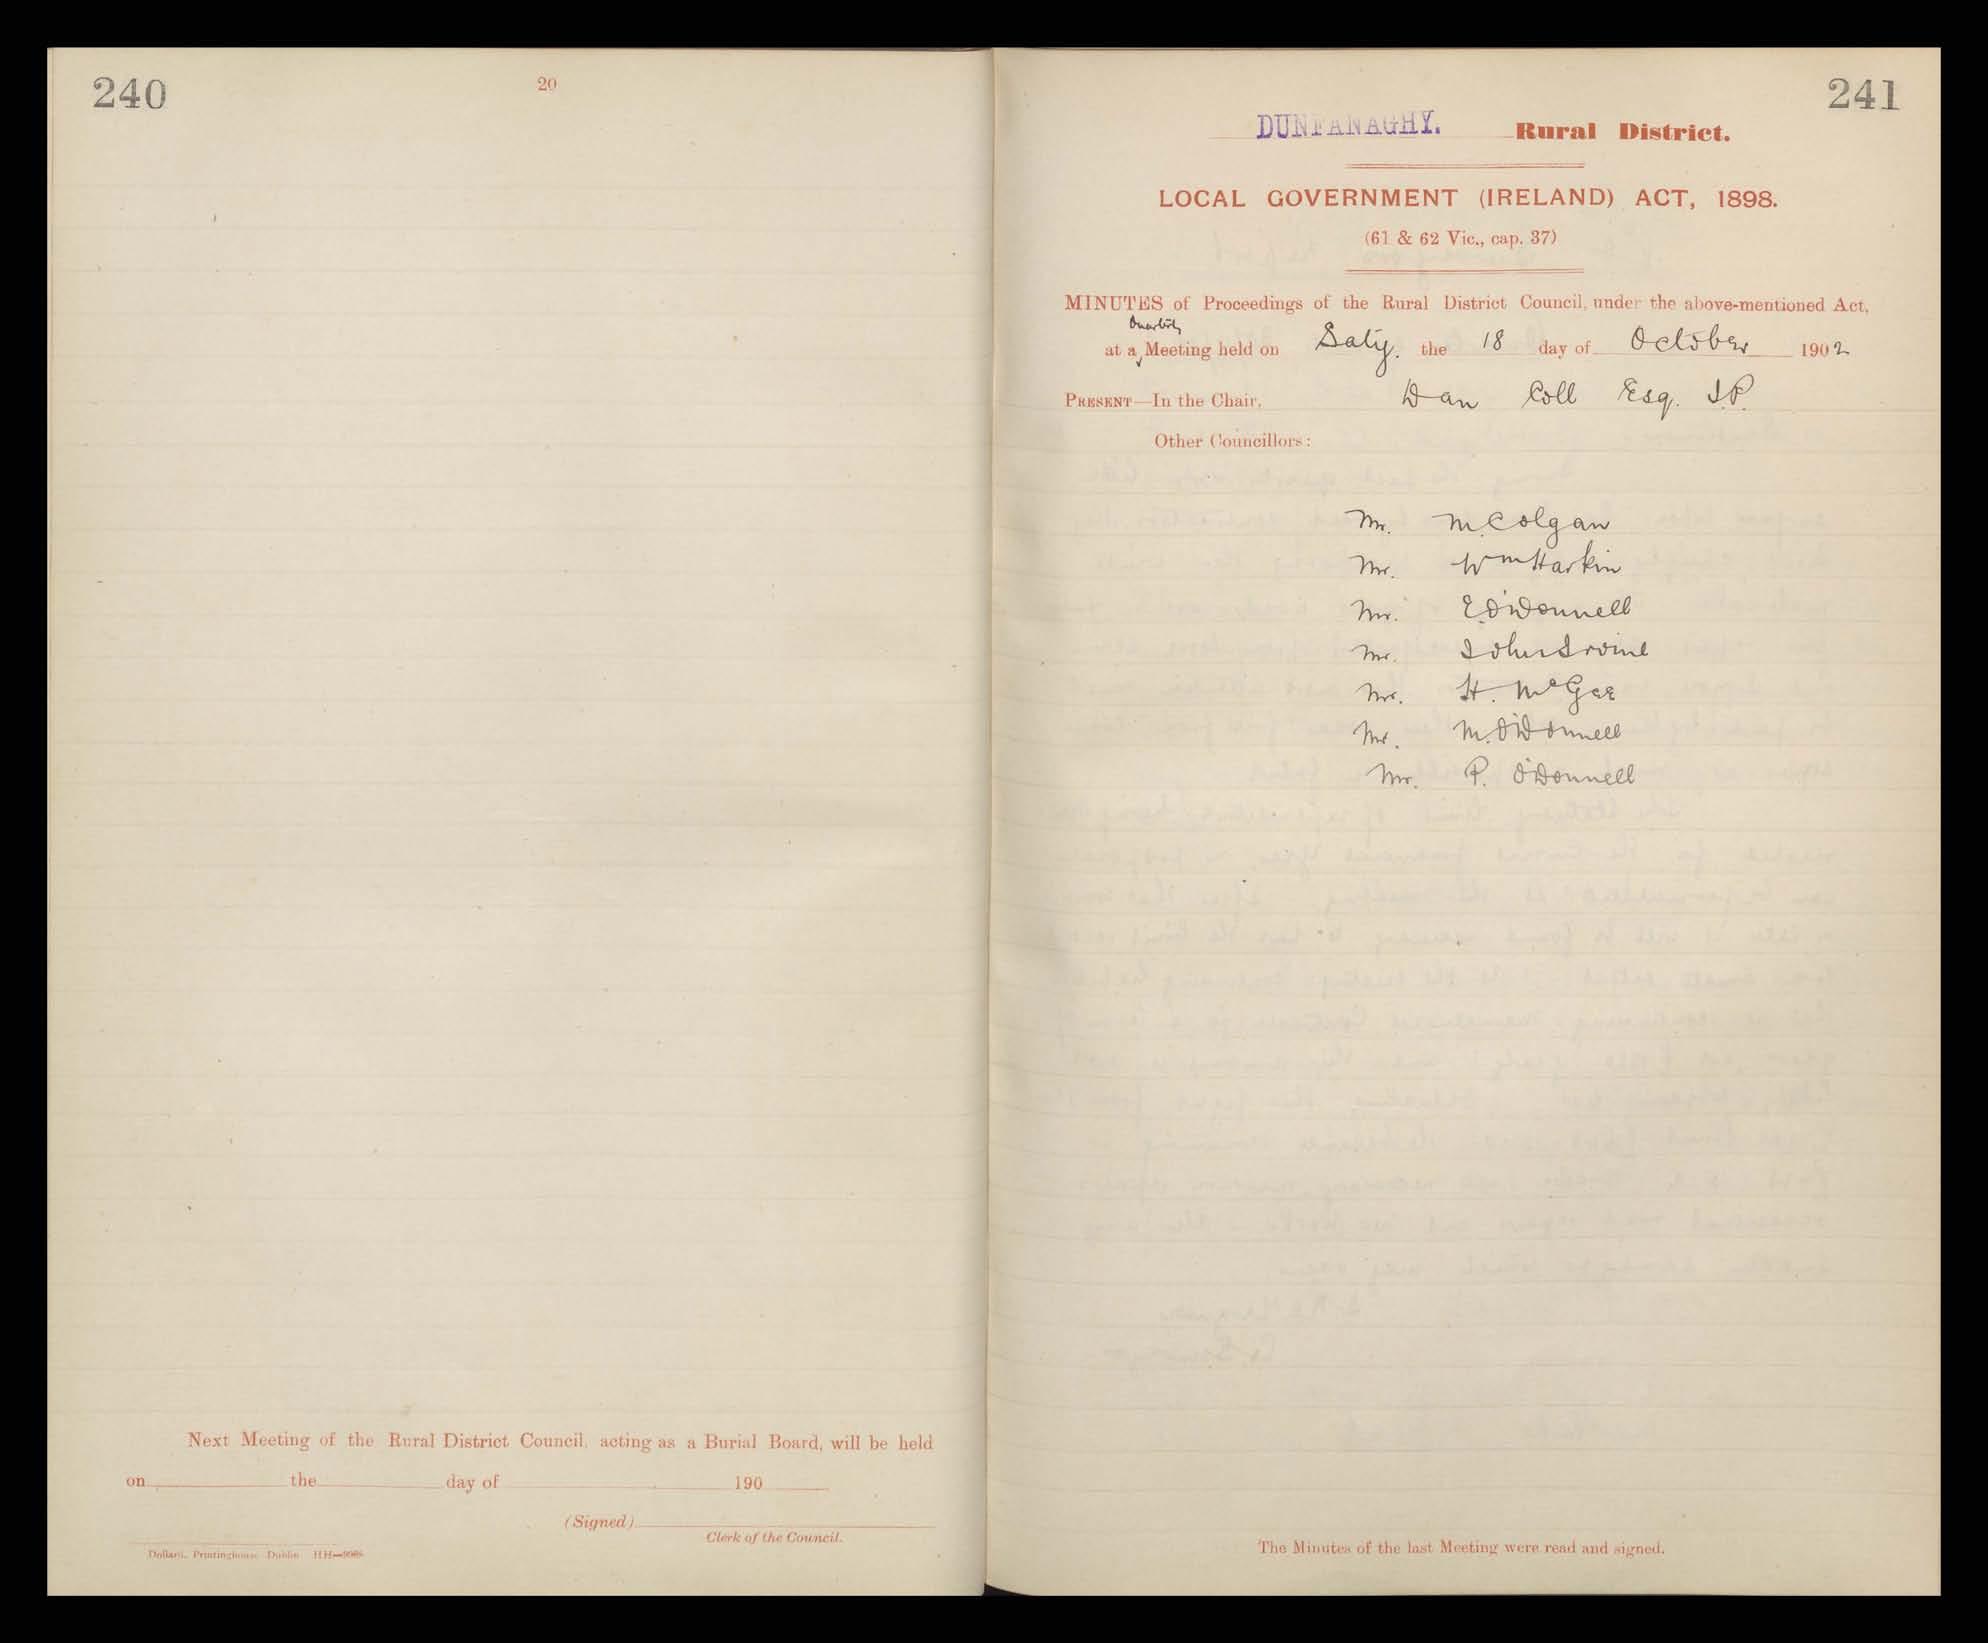 240
20
Next Meeting of the Rural District Council, acting as a Burial Board, will be held
on the day of 190
(Signed)
Clerk of the Council.
Dollard, Printinghouse Dublin
241
DUNFANAGHY. Rural District.
LOCAL GOVERNMENT (IRELAND) ACT, 1898.
(61 & 62 Vic., cap. 37)
MINUTES of Proceedings of the Rural District Council, under the above-mentioned Act,
Quarterly
at a Meeting held on Saty. the 18 day of October 1902
PRESENT—In the Chair, Dan Coll Esq. J.P.
Other Councillors:
Mr. M. Colgan
Mr. Wm Harkin
Mr. E. O'Donnell
Mr. John Irvine
Mr. H. McGee
Mr. M. O'Donnell
Mr. P. O'Donnell
The Minutes of the last Meeting were read and signed.